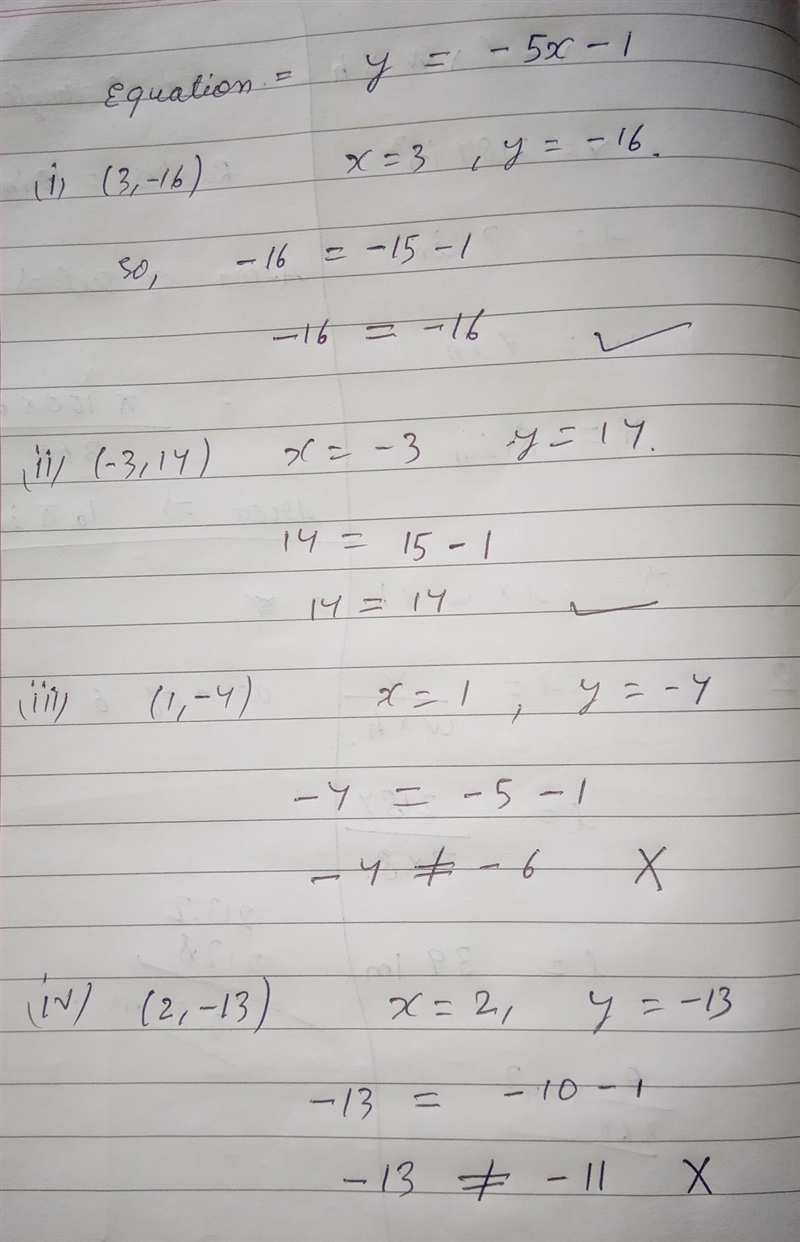 Equation = y = -5x - 1
(i) (3, -16) x = 3 , y = -16.
so, -16 = -15 - 1
-16 = -16 ✓
(ii) (-3, 14) x = -3 y = 14.
14 = 15 - 1
14 = 14 ✓
(iii) (1, -4) x = 1 , y = -4
-4 = -5 - 1
-4 ≠ -6 X
(iv) (2, -13) x = 2, y = -13
-13 = -10 - 1
-13 ≠ -11 X